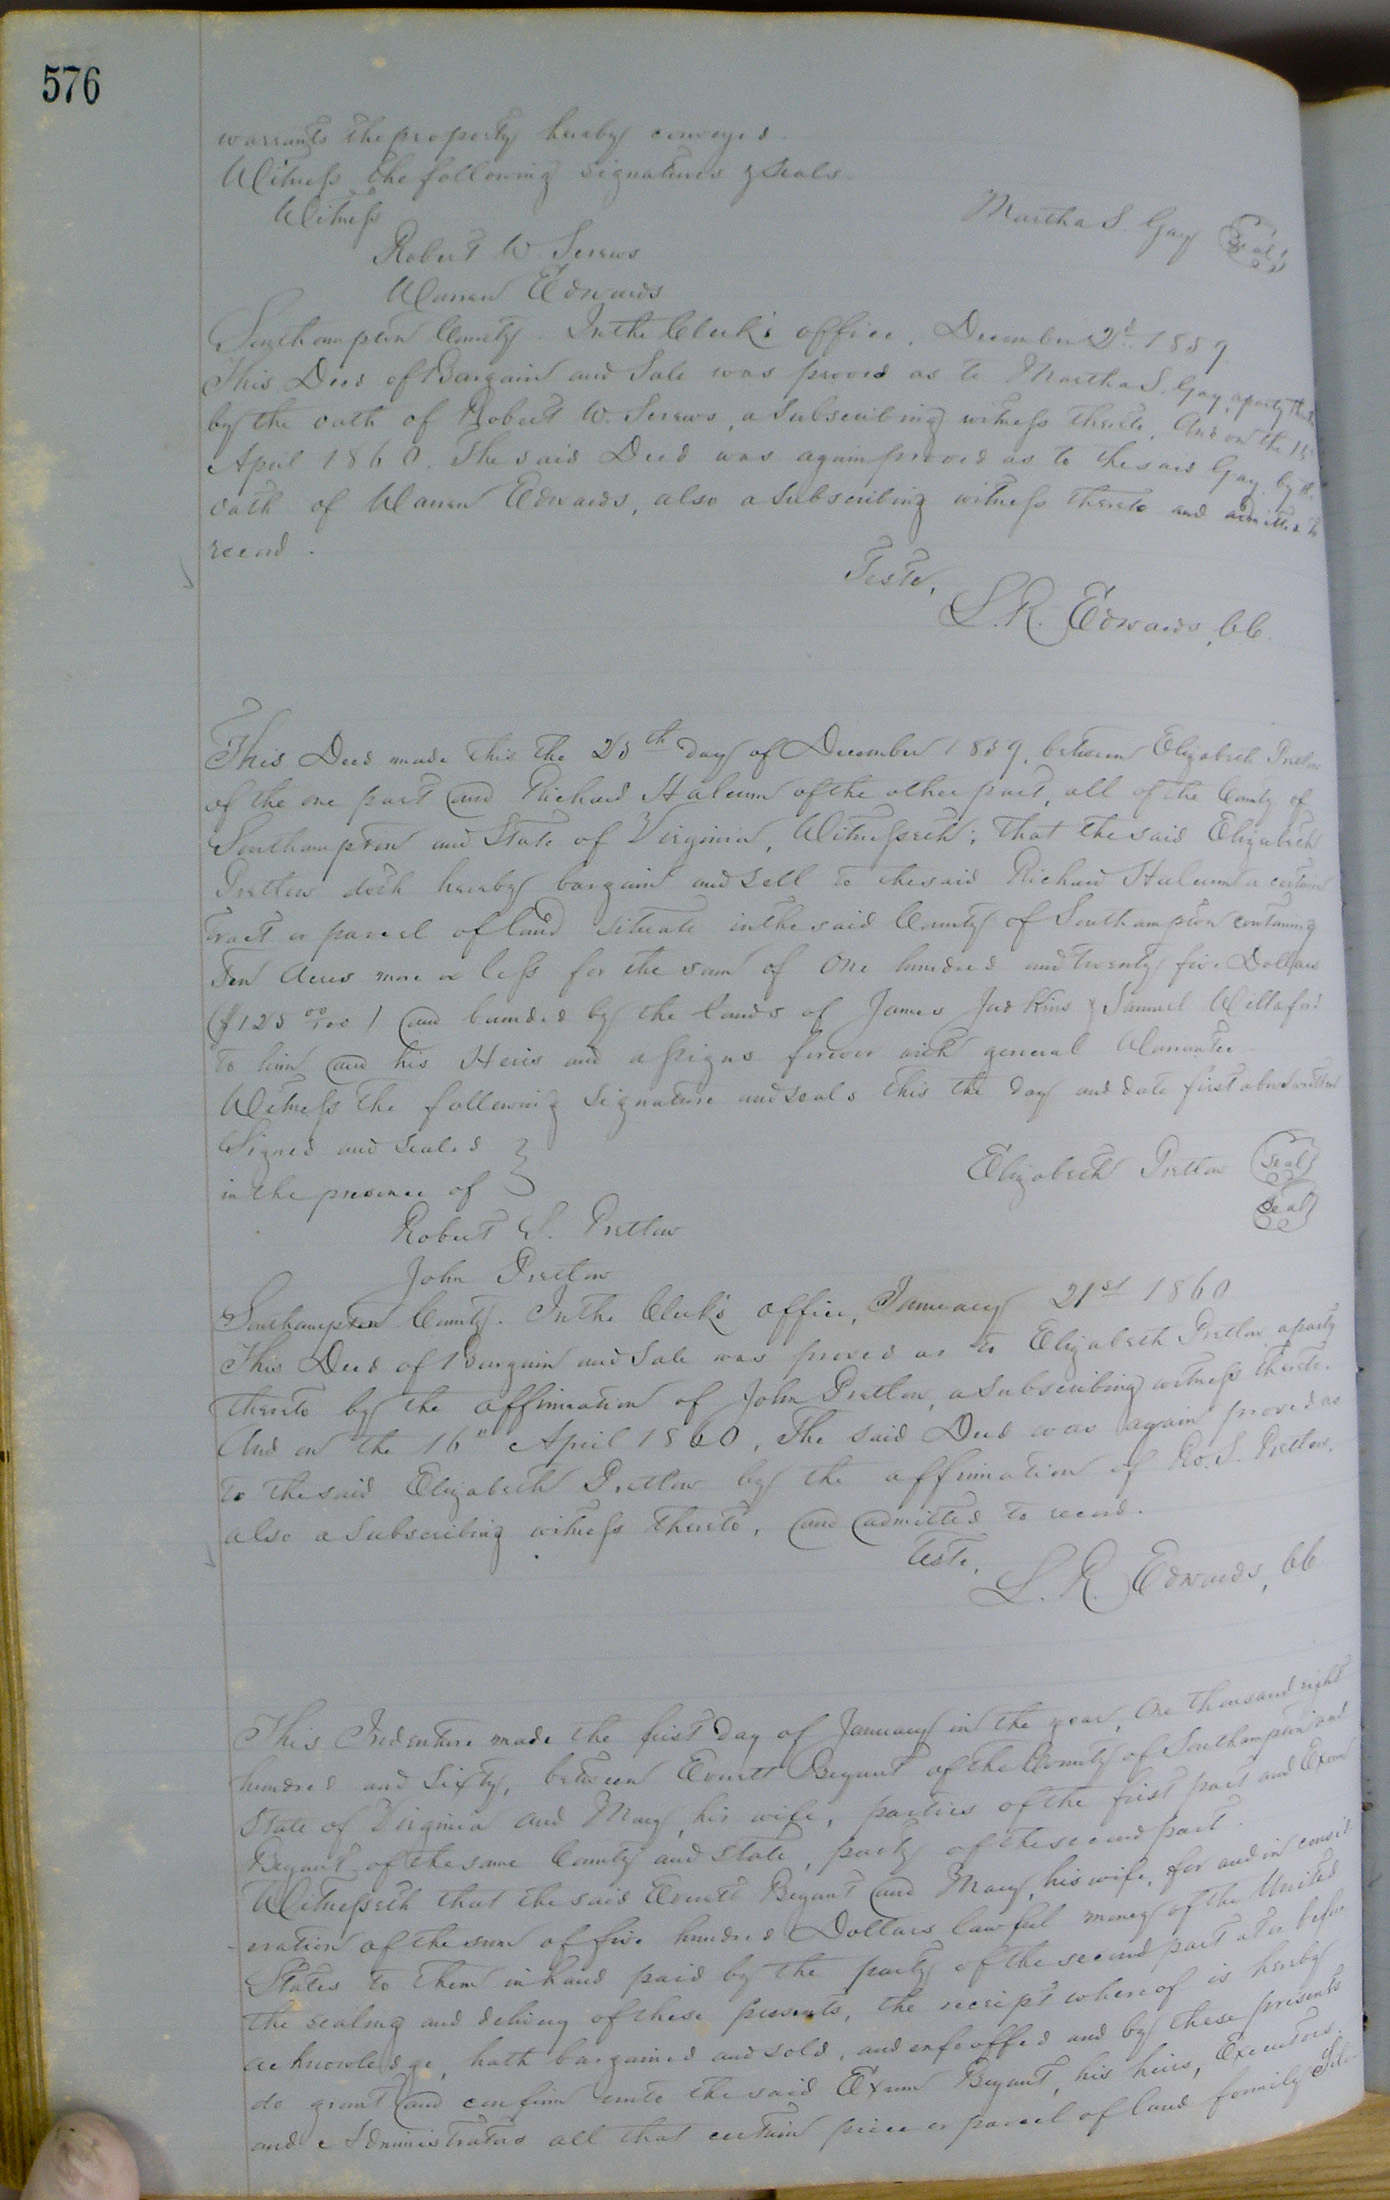 576
warrants the property hereby conveyed.
Witness the following signatures & seals.
Witness
Martha S. Gay (Seal)
Robert W. Screws
Warren Edwards
Southampton County. In the Clerk's office, December 2d. 1859
This Deed of Bargain and Sale was proved as to Martha S. Gay, a party thereto
by the oath of Robert W. Screws, a subscribing witness thereto, And on the
April 1860. The said Deed was again proved as to the said Gay, by the
oath of Warren Edwards, also a subscribing witness thereto and admitted to
record.
Teste,
L. R. Edwards, CC
This Deed made this the 25th day of December 1859, between Elizabeth Pretlow
of the one part and Richard Halcum of the other part, all of the County of
Southampton and State of Virginia, Witnesseth; that the said Elizabeth
Pretlow doth hereby bargain and sell to the said Richard Halcum a certain
tract or parcel of land situate in the said County of Southampton containing
Ten Acres more or less for the sum of One hundred and twenty five Dollars
($125 00/100) and bounded by the lands of James Judkins & Samuel
to him and his Heirs and assigns forever with general Warrantee
Witness the following signature and seals this the day and date first above written
Signed and Sealed }
in the presence of }
Elizabeth Pretlow (Seal)
(Seal)
Robert S. Pretlow
John Pretlow
Southampton County. In the Clerk's office, January 21st 1860
This Deed of Bargain and Sale was proved as to Elizabeth Pretlow a party
thereto by the affirmation of John Pretlow, a subscribing witness thereto.
And on the 16" April 1860, The said Deed was again proved as
to the said Elizabeth Pretlow by the affirmation of Ro. S. Pretlow,
also a subscribing witness thereto, and admitted to record.
Teste,
L. R. Edwards, CC
This Indenture made the first day of January in the year, One thousand eight
hundred and Sixty, between Everett Bryant of the County of Southampton and
State of Virginia and Mary, his wife, parties of the first part and Exum
Bryant, of the same County and State, party of the second part.
Witnesseth that the said Everett Bryant and Mary, his wife, for and in consid-
-eration of the sum of five hundred Dollars lawful money of the United
States to them in hand paid by the party of the second part at or before
the sealing and delivery of these presents, the receipt whereof is hereby
acknowledge, hath bargained and sold, and enfeoffed and by these presents
do grant and confirm unto the said Exum Bryant, his heirs, Executors
and Administrators all that certain piece or parcel of land